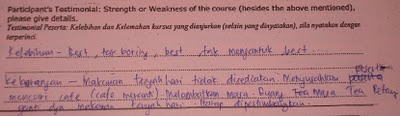 Participant's Testimonial: Strength or Weakness of the course (besides the above mentioned),
please give details.
Testimonial Peserta: Kelebihan dan Kelemahan kursus yang dianjurkan (selain yang dinyatakan), sila nyatakan dengan
terperinci.
Kelebihan - Best, tak boring, best, tak mengantuk, best.
Kekurangan - Makanan tengahari tidak disediakan. Menyusahkan peserta
mencari cafe (cafe menarik) Melambatkan masa. Buang masa Tea Petang
ganti dgn makanan tengahari. Harap dipertimbangkan